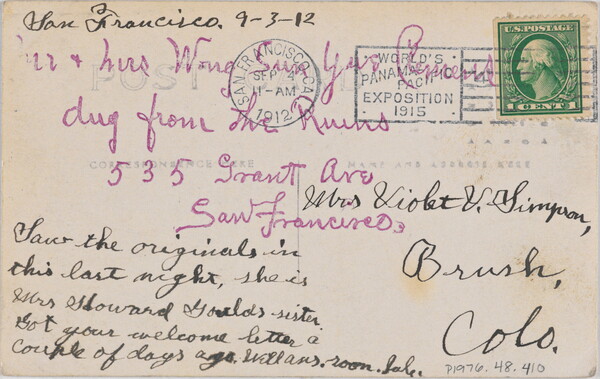 San Francisco. 9-3-12
Mr & Mrs Wing Sun Yue
dug from the Ruins
535 Grant Ave
San Francisco.
POST
CORRESPONDENCE HERE
NAME AND ADDRESS HERE
SAN FRANCISCO, CAL.
SEP 4
11-AM
1912
WORLD'S
PANAMA-
PAC
EXPOSITION
1915
U.S. POSTAGE
1 CENT 1
Saw the originals in
this last night, she is
Mrs Howard Goulds sister
Got your welcome letter a
couple of days ago. Will ans. soon.
Mrs Violet V. Simpson,
Brush,
Colo.
P1976.48.410